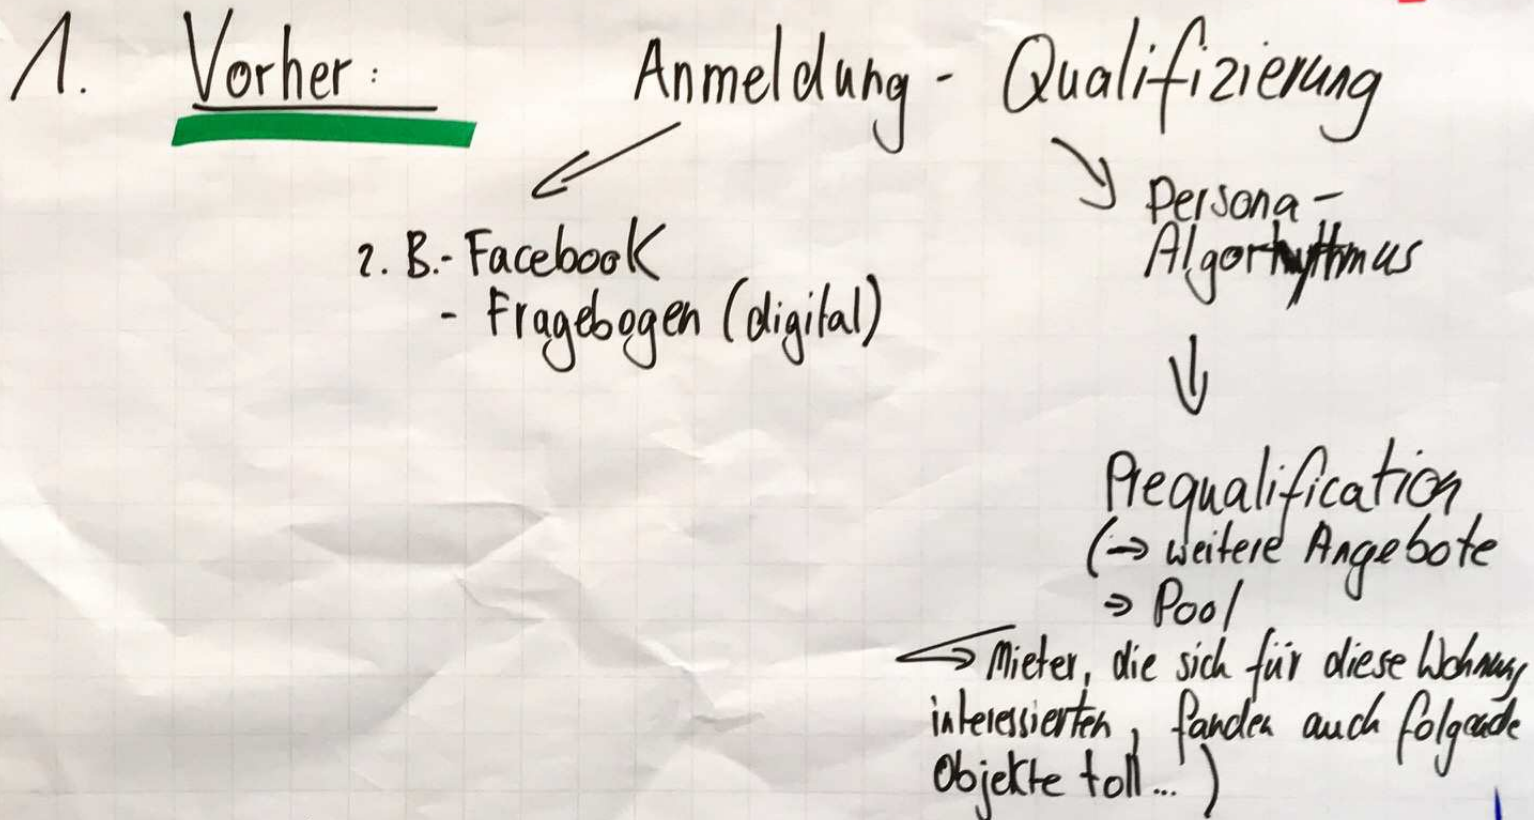 1. Vorher: Anmeldung - Qualifizierung
z. B. - Facebook
- Fragebogen (digital)
Persona-
Algorhythmus
↓
Prequalification
(→ weitere Angebote
⇒ Pool
⇒ Mieter, die sich für diese Wohnung
interessierten, fanden auch folgende
Objekte toll... )